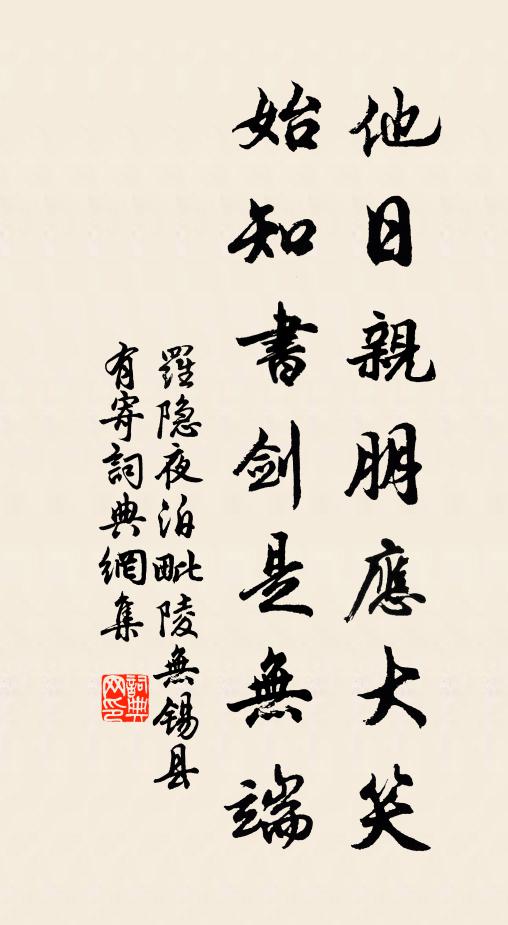 他日親朋應大笑
始知書劍是無端
羅隐夜泊毗陵無錫县
有寄詞典網集
詞典
网印